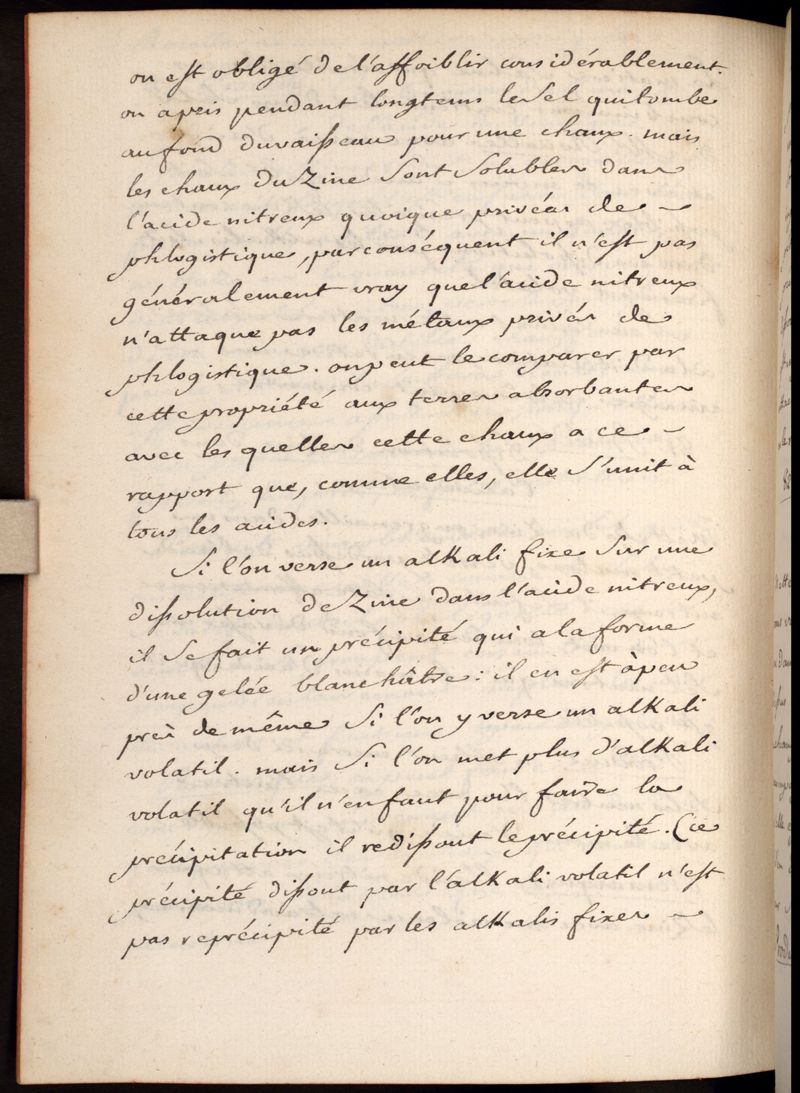 on est obligé de l'affoiblir considérablement.
on a pris pendant longtems le Sel qui tombe
au fond du vaisseau pour une chaux. mais
les chaux du Zinc Sont Solubles dans
l'acide nitreux quoique privées de
phlogistique, par conséquent il n'est pas
généralement vray que l'acide nitreux
n'attaque pas les métaux privés de
phlogistique. on peut le comparer par
cette propriété aux terres absorbantes
avec les quelles cette chaux a ce
rapport que, comme elles, elle S'unit à
tous les acides.
Si l'on verse un alKali fixe Sur une
dissolution de Zinc dans l'acide nitreux,
il Se fait un précipité qui a la forme
d'une gelée blanchâtre: il en est à peu
près de même Si l'on y verse un alKali
volatil. mais Si l'on met plus d'alKali
volatil qu'il n'en faut pour faire la
précipitation il redissout le précipité. Ce
précipité dissout par l'alKali volatil n'est
pas reprécipité par les alKalis fixes